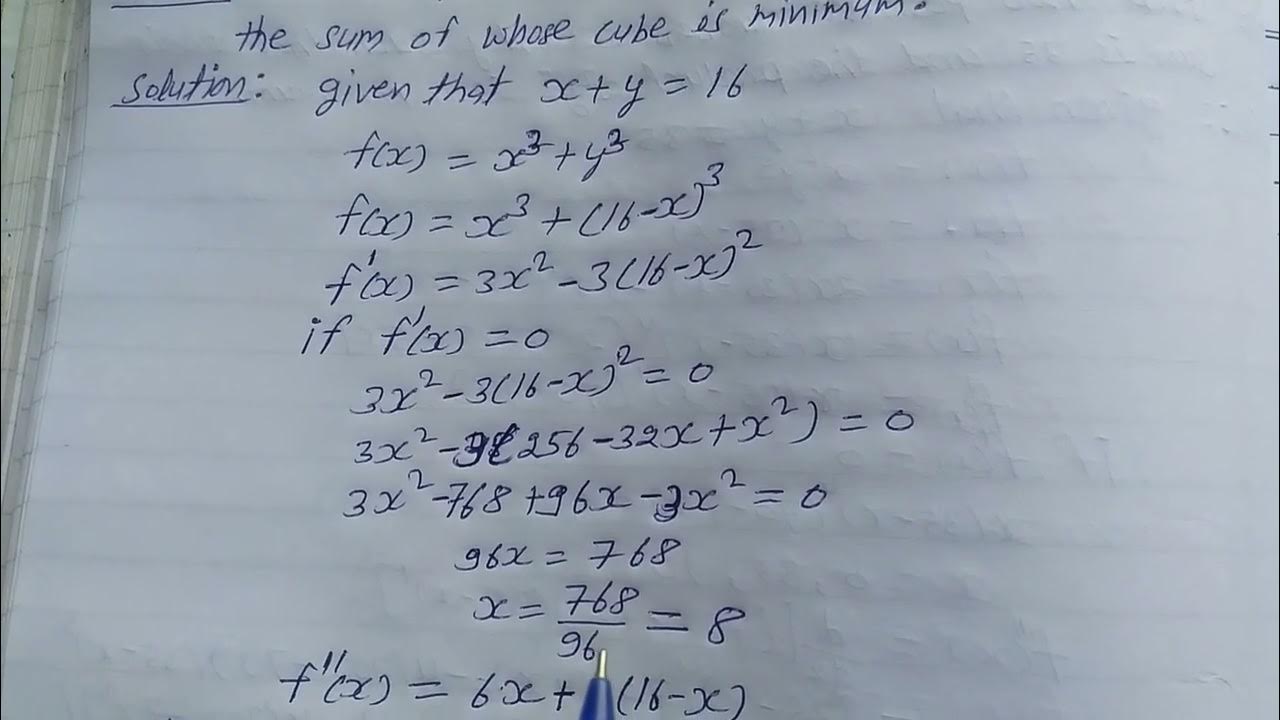 the sum of whose cube is minimum.
Solution: given that x + y = 16
f(x) = x³ + y³
f(x) = x³ + (16-x)³
f'(x) = 3x² - 3(16-x)²
if f'(x) = 0
3x² - 3(16-x)² = 0
3x² - 3(256 - 32x + x²) = 0
3x² - 768 + 96x - 3x² = 0
96x = 768
x = 768/96 = 8
f''(x) = 6x + (16-x)